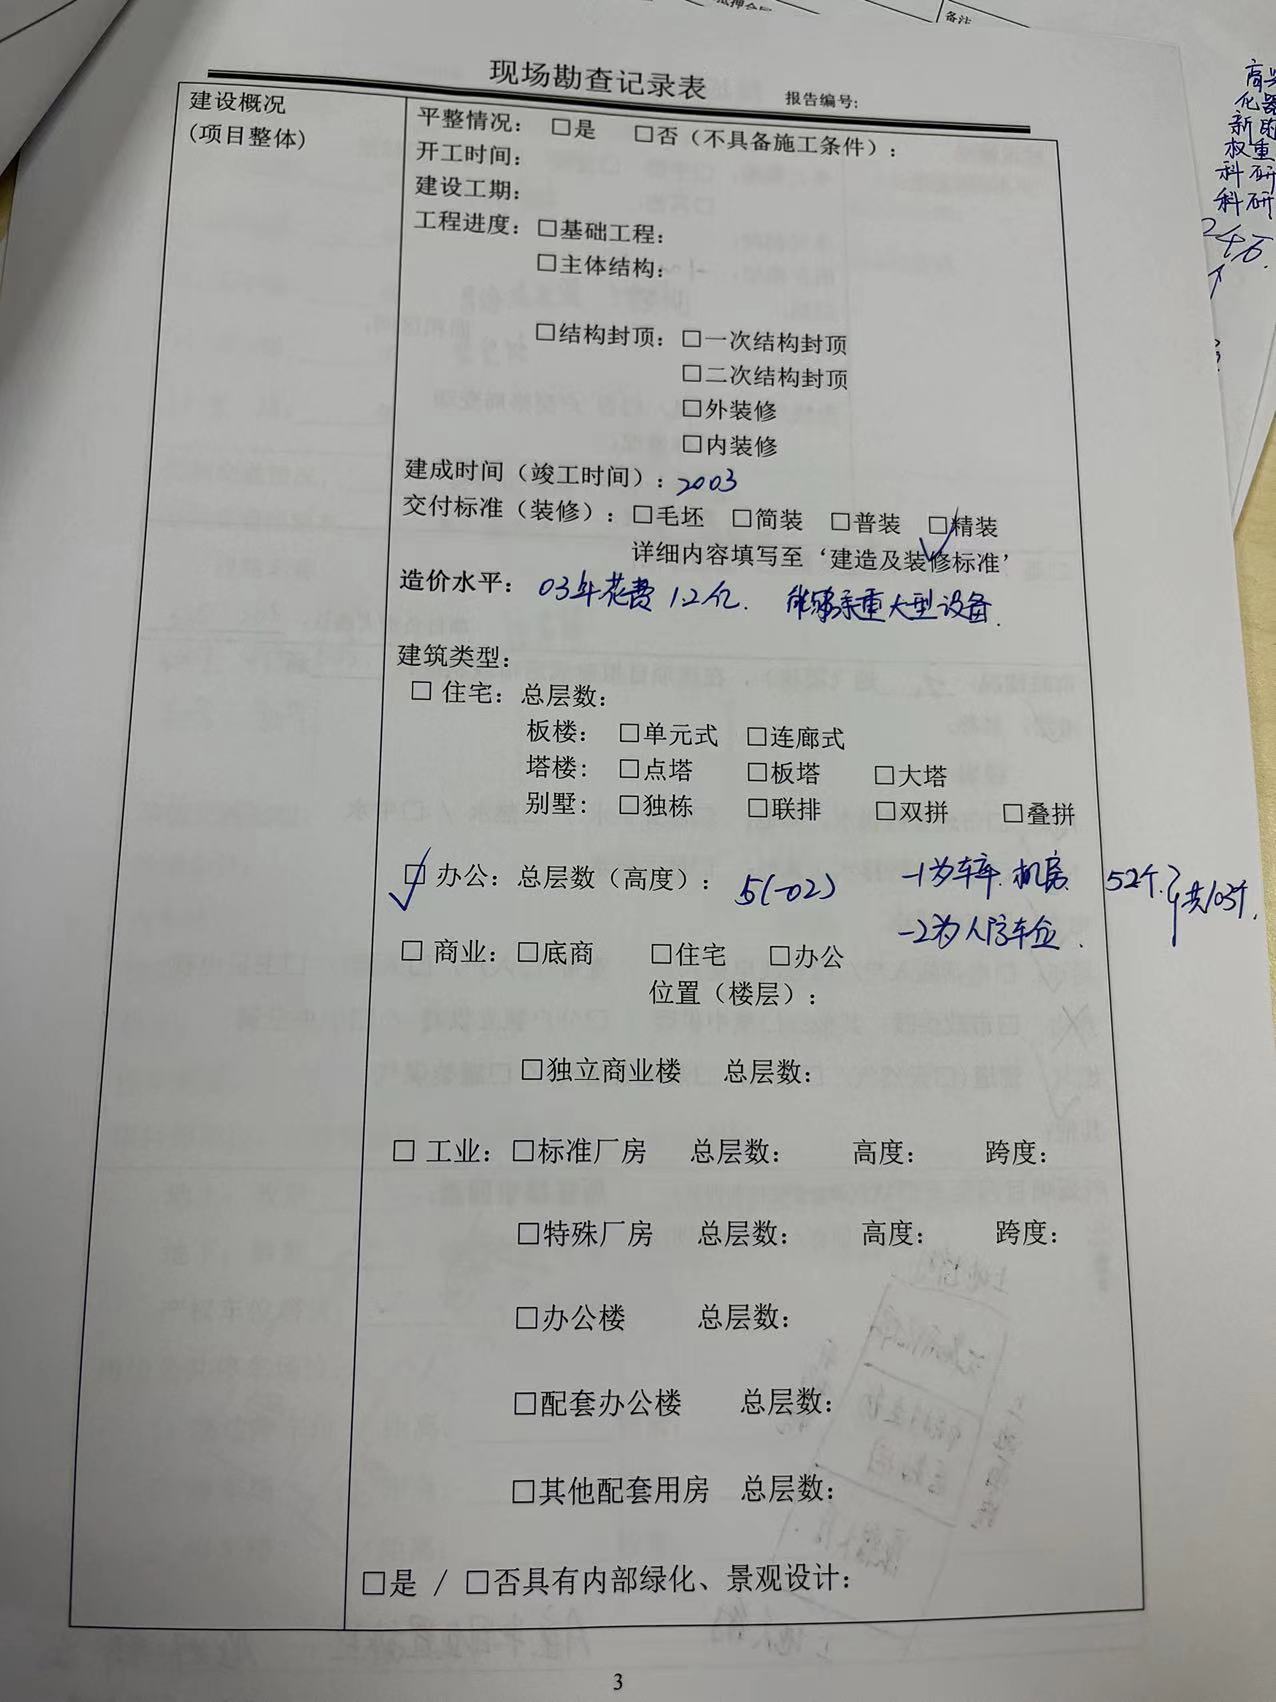 备注
现场勘查记录表
报告编号:
建设概况
(项目整体)
平整情况： □是 □否（不具备施工条件）：
开工时间：
建设工期：
工程进度：□基础工程：
□主体结构：
□结构封顶：□一次结构封顶
□二次结构封顶
□外装修
□内装修
建成时间（竣工时间）：2003
交付标准（装修）：□毛坯 □简装 □普装 □精装
详细内容填写至‘建造及装修标准’
造价水平： 03年花费12亿. 能够承重大型设备.
建筑类型：
□ 住宅：总层数：
板楼： □单元式 □连廊式
塔楼： □点塔 □板塔 □大塔
别墅: □独栋 □联排 □双拼 □叠拼
☑ 办公：总层数（高度）： 5(-02) -1为车库.机房. 52个. 共103个.
-2为人防车位.
□ 商业：□底商 □住宅 □办公
位置（楼层）：
□独立商业楼 总层数：
□ 工业：□标准厂房 总层数： 高度： 跨度：
□特殊厂房 总层数： 高度： 跨度：
□办公楼 总层数：
□配套办公楼 总层数：
□其他配套用房 总层数：
□是 / □否具有内部绿化、景观设计：
3
化器
新的
权重
科研
科研